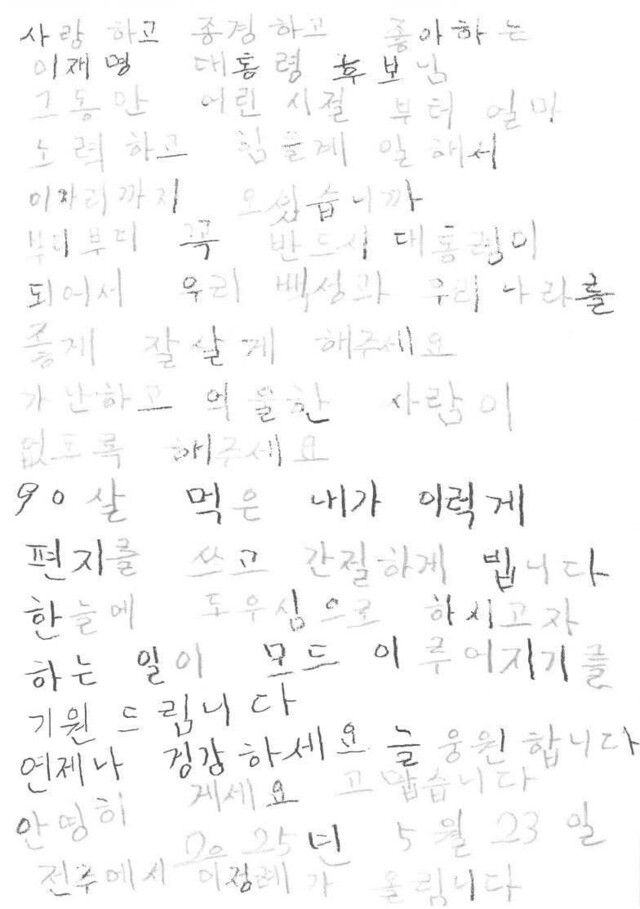 사랑 하고 존경하고 좋아하는
이재명 대통령 후보님
그동안 어린 시절 부터 얼마
노력하고 힘들게 일해서
이자리까지 오싰습니까
부디부디 꼭 반드시 대통령이
되어서 우리 백성과 우리나라를
좋게 잘살게 해주세요
가난하고 억울한 사람이
없도록 해주세요
90살 먹은 내가 이럭게
편지를 쓰고 간절하게 빕니다
한늘에 도우심으로 하시고자
하는 일이 모드 이루어지기를
기원 드립니다
언제나 겅강하세요 늘 웅원합니다
안영히 게세요 고맙습니다
2025년 5월 23일
전주에서 이정례가 올림니다